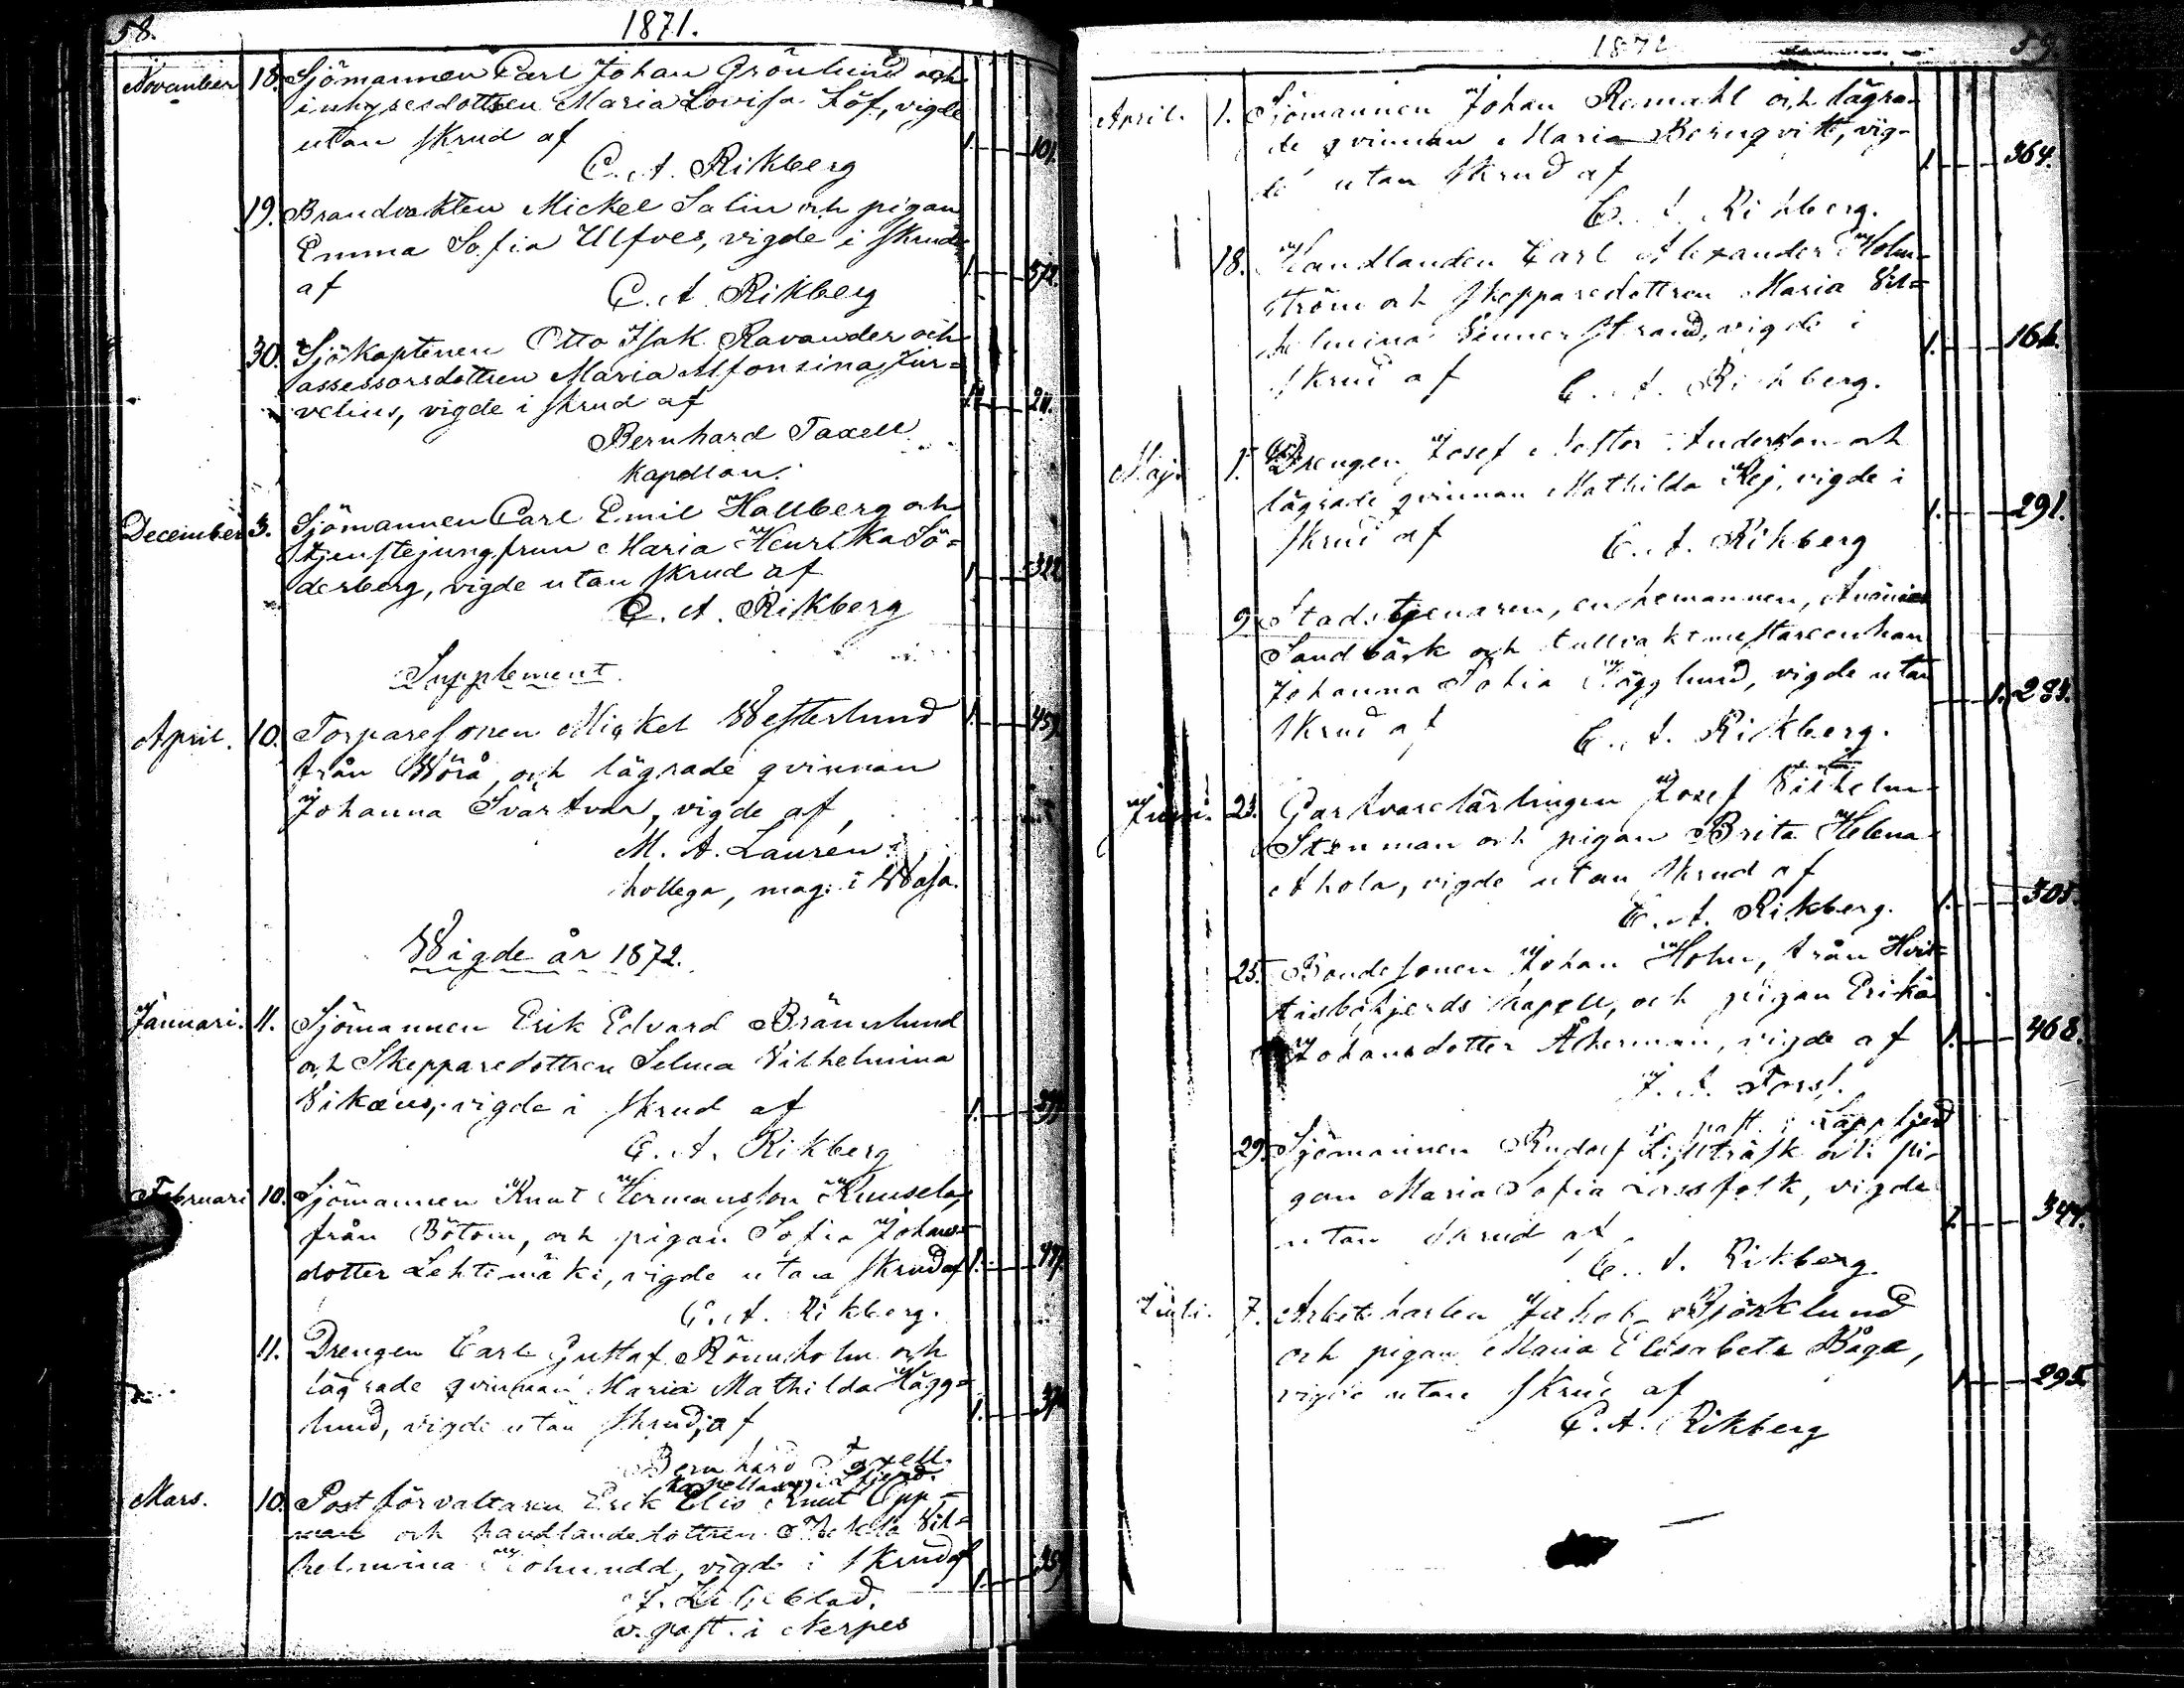 58.
1871.
November 18. Sjömannen Carl Johan Grönlund och
inhysesdottren Maria Lovisa Löf, vigde
utan skrud af 1. 101.
C. A. Rikberg
19. Brandvakten Mickel Salin och pigan
Emma Sofia Ulfves, vigde i skrud
af 1. 372.
C. A. Rikberg
30. Sjökaptenen Otto Isak Ravander och
assessorsdottren Maria Alfonsina Jur-
velius, vigde i skrud af 211.
Bernhard Taxell
Kapellan.
December 3. Sjömannen Carl Emil Hallberg och
tjenstejungfrun Maria Henrika Sö-
derberg, vigde utan skrud af 1. 322
C. A. Rikberg
Supplement.
April. 10. Torparesonen Mickel Westerlund 1. 459.
från Wörå, och lägrade qvinnan
Johanna Svartvar, vigde af
M. A. Laurén
kollega, mag. i Wasa.
Wigde år 1872.
Januari. 11. Sjömannen Erik Edvard Brännlund
och Skepparedottren Selma Vilhelmina
Vikæus, vigde i skrud af 1.
C. A. Rikberg
Februari 10. Sjömannen Knut Hermansson Kuusela,
från Bötom, och pigan Sofia Johans-
dotter Lehtimäki, vigde utan skrud af 1.
C. A. Rikberg.
11. Drengen Carl Gustaf Rönnholm och
lägrade qvinnan Maria Mathilda Hägg-
lund, vigde utan skrud, af 1.
Bernhard Taxell.
Kapellan i
Mars. 10. Postförvaltaren Erik Elis Knut Upp-
man och handlandedottren Thekla Vil-
helmina vigde i skrud af 1.
J. Liljeblad.
v. past. i Nerpes
1872
59.
April. 1. Sjömannen Johan Remahl och lägra-
de qvinnan Maria Bernqvist, vig-
de utan skrud af 1. 364.
C. A. Rikberg.
18. Handlanden Carl Alexander Holm-
ström och skepparedottren Maria Vil-
helmina Sennerstrand, vigde i 1. 161.
skrud af C. A. Rikberg.
Maj. 1. Drengen Josef Nestor Anderson och
lägrade qvinnan Mathilda Rej, vigde i 1. 291.
skrud af
C. A. Rikberg
9. Stadstjenaren, enkemannen,
Sandbäck och tullvaktmestareenkan
Johanna Sofia Hägglund, vigde utan 1. 284.
skrud af
C. A. Rikberg.
Juni. 23. Garfvarelärlingen Josef Vilhelm
Stenman och pigan Brita Helena
Ahola, vigde utan skrud af
C. A. Rikberg. 1. 305.
25. Bondesonen Johan Holm, från Hvit-
tisbofjerds kapell, och pigan Erika
Johansdotter Åkerman, vigde af 1. 468.
J. A. Forss.
v. past. i Lappfjerd
29. Sjömannen Rudolf Liljträsk och pi-
gan Maria Sofia Lassfolk, vigde
utan skrud af 1. 344.
C. A. Rikberg
Juli. 7. Arbetskarlen Jakob Björklund
och pigan Maria Elisabeta Båge,
vigde utan skrud af 1. 295.
C. A. Rikberg